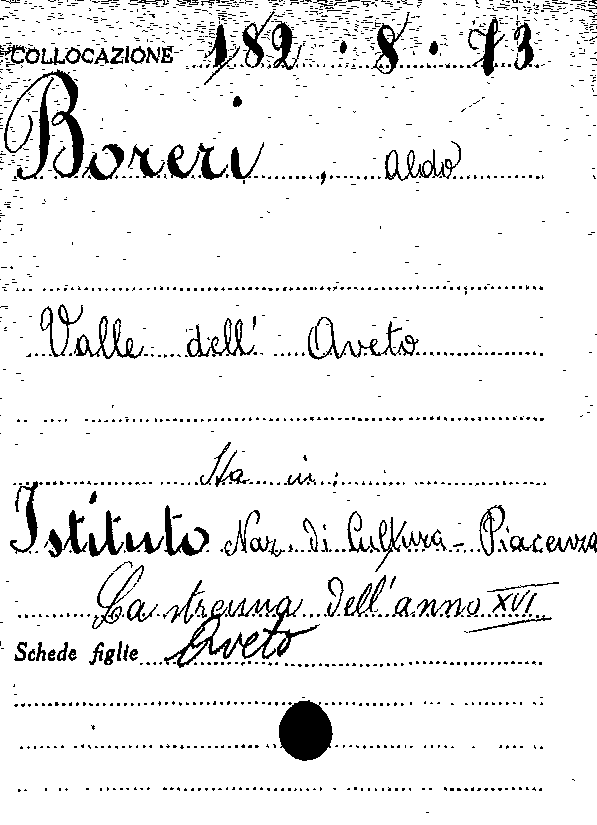 COLLOCAZIONE 182.8.73
Boreri, Aldo
Valle dell' Aveto
Sta in:
Istituto Naz. di Cultura - Piacenza
La strenna dell'anno XVI
Schede figlie Aveto